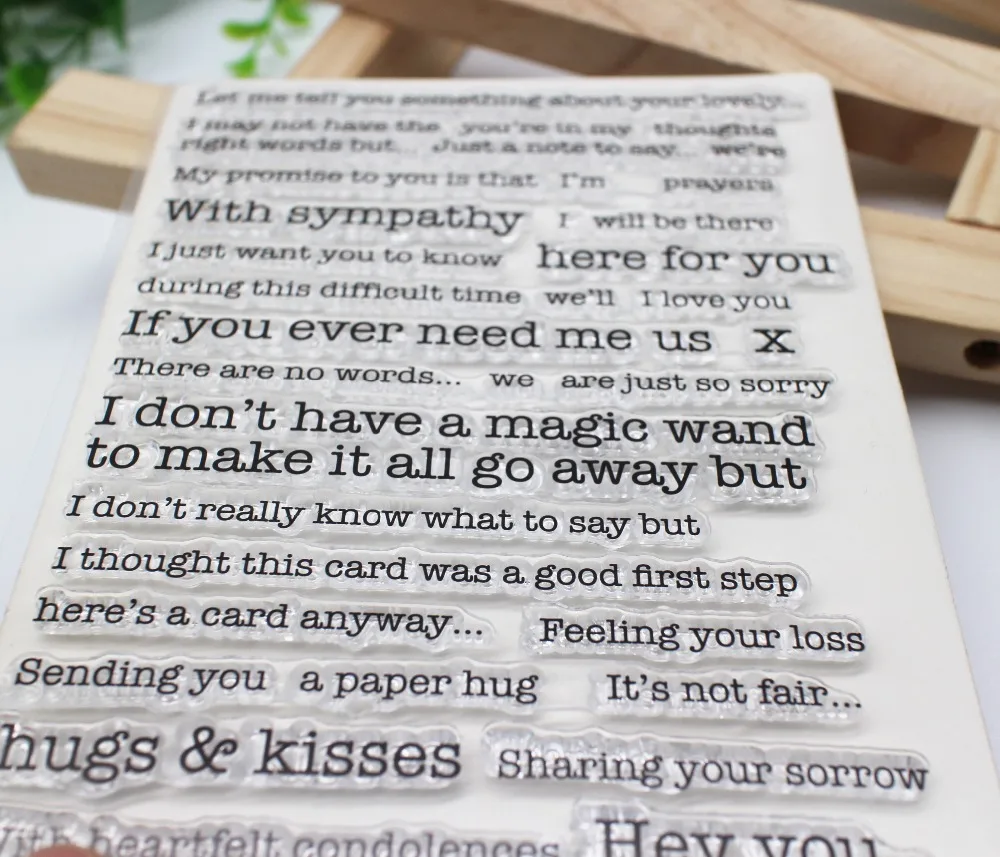 Let me tell you something about your lovely...
I may not have the you're in my thoughts
right words but... Just a note to say... we're
My promise to you is that I'm prayers
With sympathy I will be there
I just want you to know here for you
during this difficult time we'll I love you
If you ever need me us x
There are no words... we are just so sorry
I don't have a magic wand
to make it all go away but
I don't really know what to say but
I thought this card was a good first step
here's a card anyway... Feeling your loss
Sending you a paper hug It's not fair...
hugs & kisses Sharing your sorrow
with heartfelt condolences Hey you